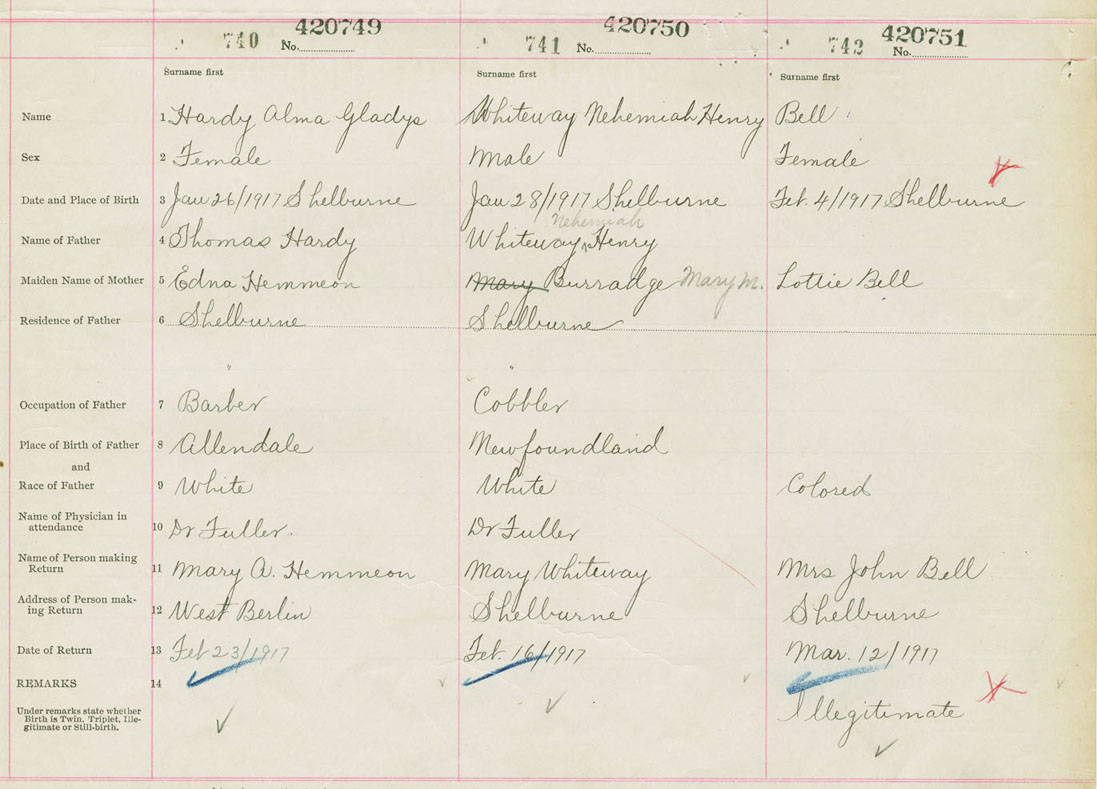 740 420749 No.
741 420750 No.
742 420751 No.
Surname first Surname first Surname first
Name 1 Hardy Alma Gladys Whiteway Nehemiah Henry Bell
Sex 2 Female Male Female
Date and Place of Birth 3 Jan 26/1917 Shelburne Jan 28/1917 Shelburne Feb. 4/1917 Shelburne
Nehemiah
Name of Father 4 Thomas Hardy Whiteway Henry
Maiden Name of Mother 5 Edna Hemmeon Mary Burradge Mary M. Lottie Bell
Residence of Father 6 Shelburne Shelburne
Occupation of Father 7 Barber Cobbler
Place of Birth of Father 8 Allendale Newfoundland
and
Race of Father 9 White White Colored
Name of Physician in
attendance 10 Dr Fuller. Dr Fuller
Name of Person making
Return 11 Mary A. Hemmeon Mary Whiteway Mrs John Bell
Address of Person mak-
ing Return 12 West Berlin Shelburne Shelburne
Date of Return 13 Feb 23/1917 Feb. 16/1917 Mar. 12/1917
REMARKS 14
Under remarks state whether
Birth is Twin, Triplet, Ille-
gitimate or Still-birth.
Illegitimate